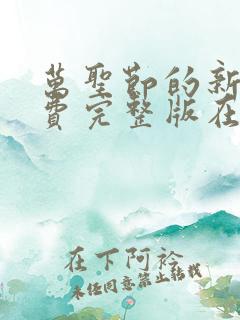 萬聖節的新
費完整版在
在下阿衿
未经同意禁止转载